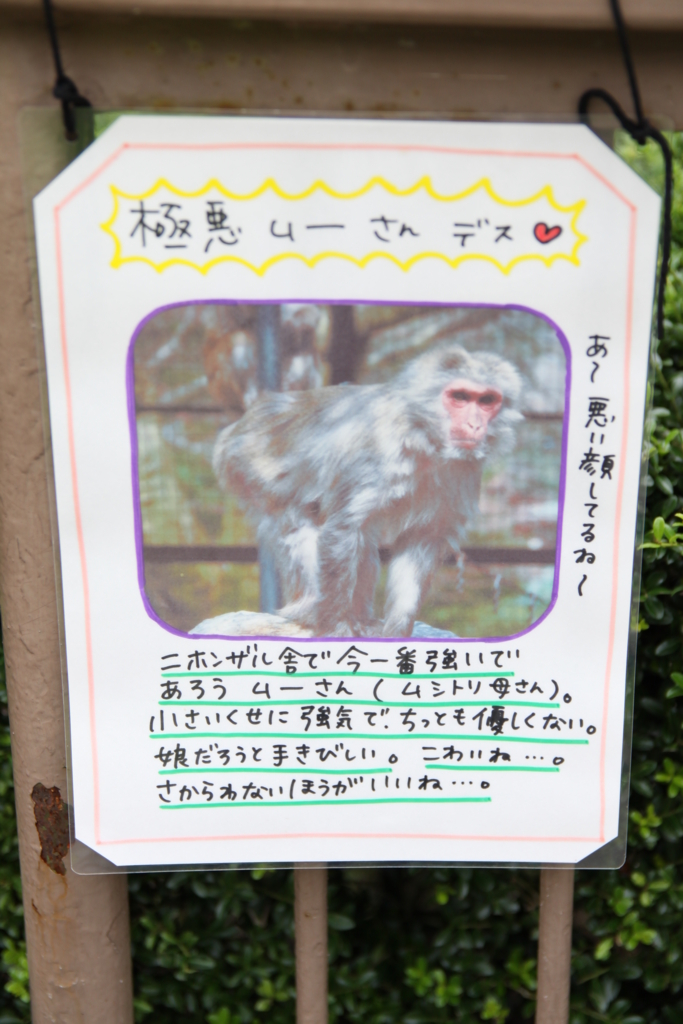 極悪 ムー さん デス
あ〜 悪い顔してるね〜
ニホンザル舎で今一番強いで
あろう ムーさん(ムシトリ母さん)。
小さいくせに強気で、ちっとも優しくない。
娘だろうと手きびしい。 こわいね…。
さからわないほうがいいね…。